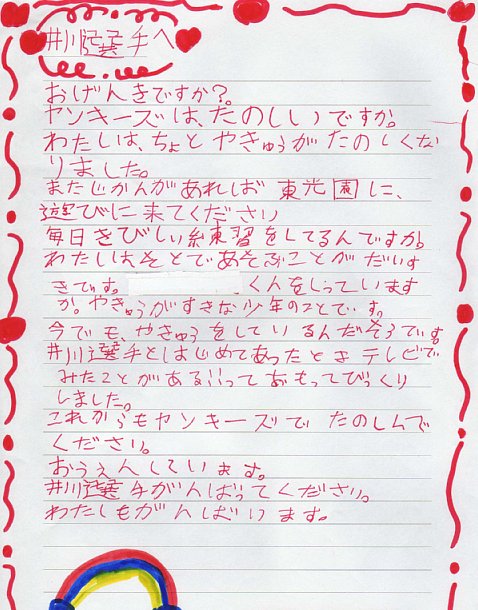 井川選手へ
おげんきですか?
ヤンキーズは、たのしいですか。
わたしは、ちょとやきゅうがたのしくな
りました。
またじかんがあればお東光園に、
遊びに来てください
毎日きびしい練習をしてるんですか。
わたしはそとであそぶことがだいす
きです。 くんをしっています
か。やきゅうがすきな少年のことです。
今でも、やきゅうをしているんだそうです。
井川選手とはじめてあったときテレビで
みたことがある!!っておもってびっくり
しました。
これからもヤンキーズでたのしんで
ください。
おうえんしています。
井川選手がんばってください。
わたしもがんばります。